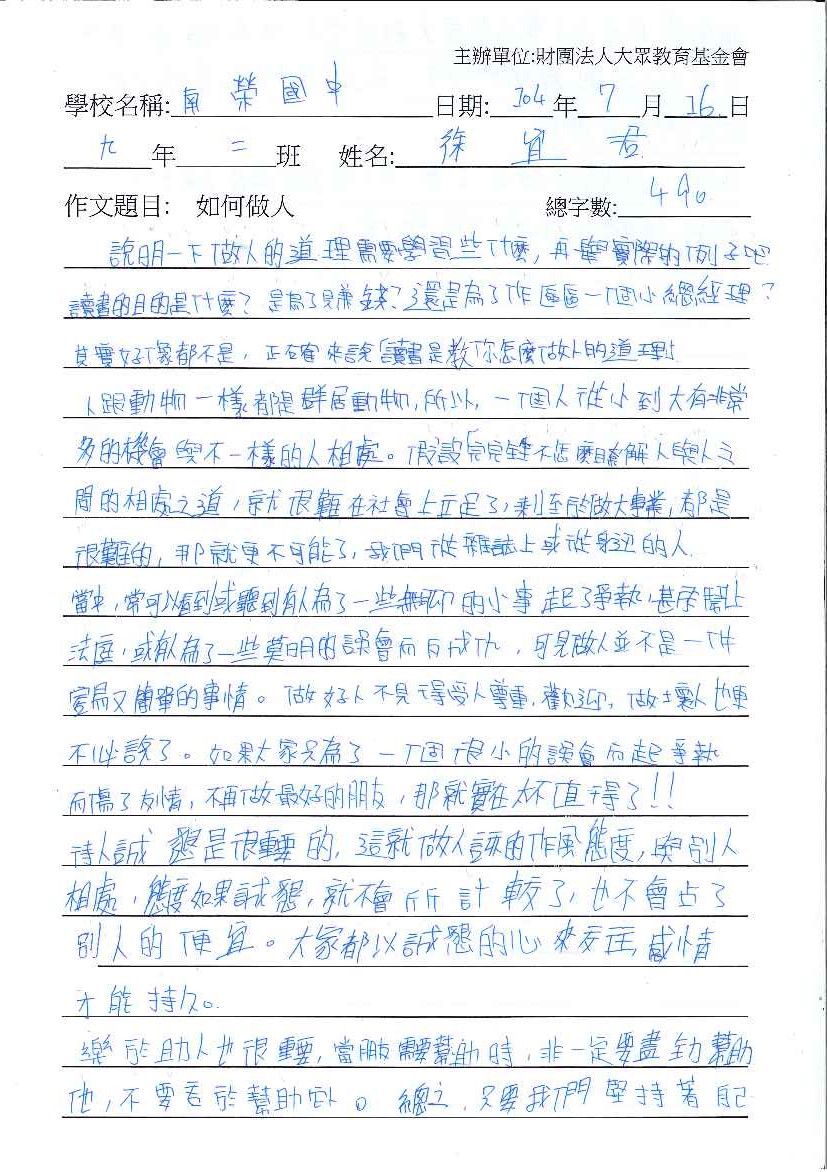 主辦單位:財團法人大眾教育基金會
學校名稱:南榮國中 日期:104年7月16日
九年二班 姓名:徐宜君
作文題目: 如何做人 總字數:490
說明一下做人的道理需要學習些什麼,再舉實際的例子吧
讀書的目的是什麼?是為了只賺錢?還是為了作區區一個小總經理?
其實好像都不是,正確來說「讀書是教你怎麼做人的道理」
人跟動物一樣都是群居動物,所以,一個人從小到大有非常
多的機會與不一樣的人相處。假設完完全不怎麼瞭解人與人之
間的相處之道,就很難在社會上立足了,剩至於做大事業,都是
很難的,那就更不可能了,我們從雜誌上或從身邊的人
當中,常可以看到或聽到有人為了一些無聊的小事起了爭執,甚至鬧上
法庭,或有人為了一些莫明的誤會而反成仇,可見做人並不是一件
容易又簡單的事情。做好人不見得受人尊重,歡迎,做壞人也更
不必說了。如果大家只為了一個很小的誤會而起爭執
而傷了友情,不再做最好的朋友,那就實在太不值得了!!
待人誠懇是很重要的,這就做人該的作風態度,與別人
相處,態度如果誠懇,就不會所計較了,也不會占了
別人的便宜。大家都以誠懇的心來交往,感情
才能持久。
樂於助人也很重要,當朋友需要幫助時,非一定要盡全力幫助
他,不要吝於幫助。總之,只要我們堅持著自己